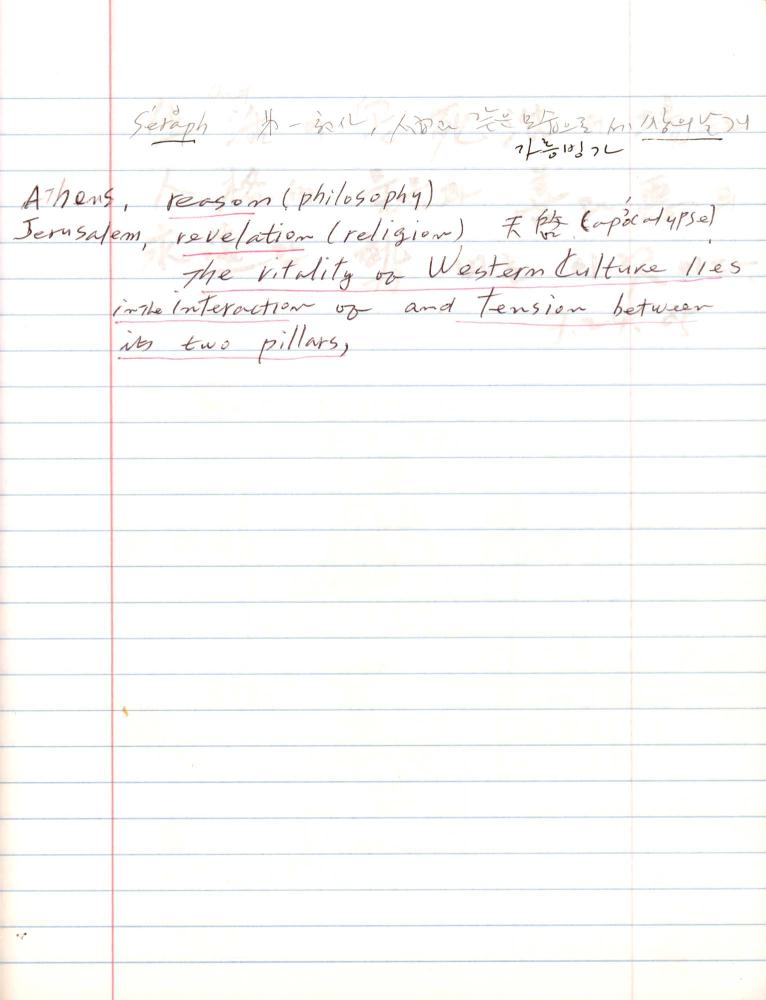 Séraph 第一天사, 사람과 같은 모습으로 세 쌍의 날개
가능한가
Athens, reason (philosophy)
Jerusalem, revelation (religion) 天啓 (apócalypse)
The vitality of Western Culture lies
in the interaction of and tension between
its two pillars,